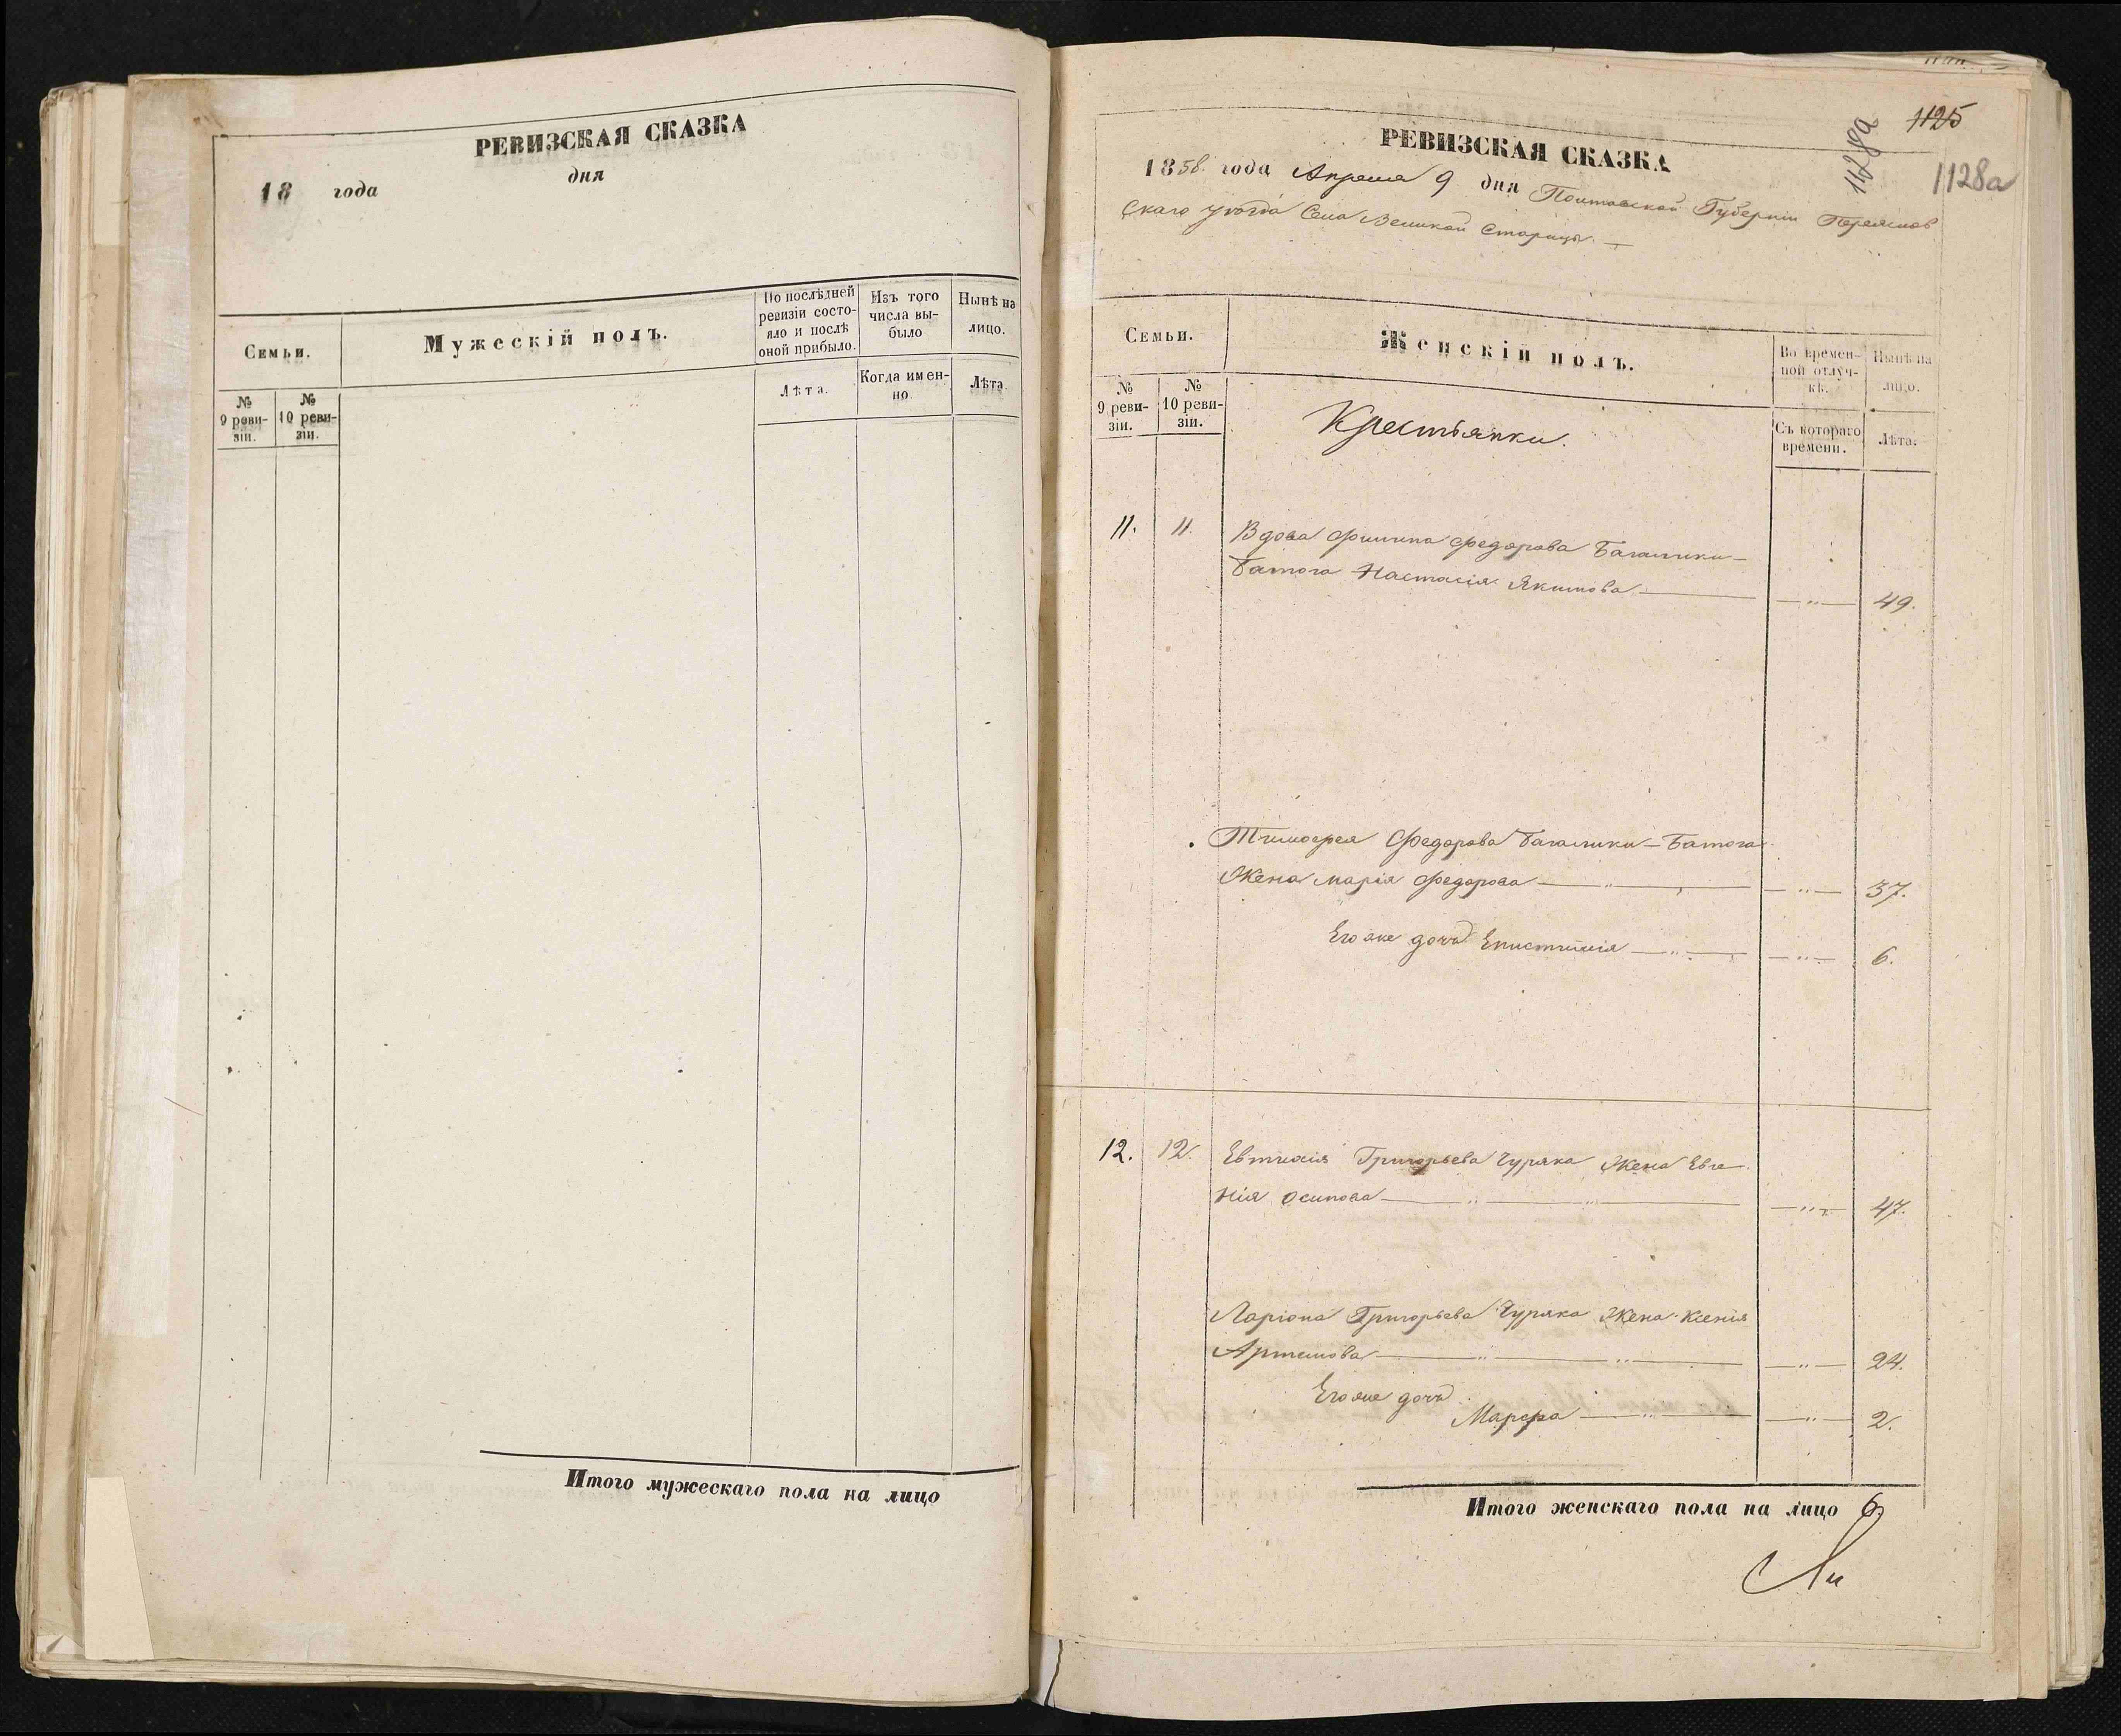 РЕВИЗСКАЯ СКАЗКА
18 года дня
Семьи.
Мужескій полъ.
По послѣдней ревизіи состо-
яло и послѣ оной прибыло.
Изъ того числа вы-
было
Нынѣ на лицо.
№ 9 реви-
зіи.
№ 10 реви-
зіи.
Лѣта.
Когда имен-
но.
Лѣта.
Итого мужескаго пола на лицо
1125
1128а
1128а
РЕВИЗСКАЯ СКАЗКА
1858. года Апреля 9 дня Полтавской Губерніи Переяслов
скаго уезда Села Великой Старицы.
Семьи.
Женскій полъ.
Во времен-
ной отлуч-
кѣ.
Нынѣ на
лицо.
№
9 реви-
зіи.
№
10 реви-
зіи.
Съ котораго
времени.
Лѣта.
Крестьянки.
11. 11. Вдова Филипа Федорова
Батога Настасія Якимова 49.
Тимофея Федорова Батога
Жена Марія Федорова 37.
Его же дочь Епистимія 6.
12. 12. Евтихія Григорьева Чуряка Жена Евге
нія Осипова 47.
Ларіона Григорьева Чуряка Жена Ксенія
Артемова 24.
Его же дочь
Марфа 2.
Итого женскаго пола на лицо 6.